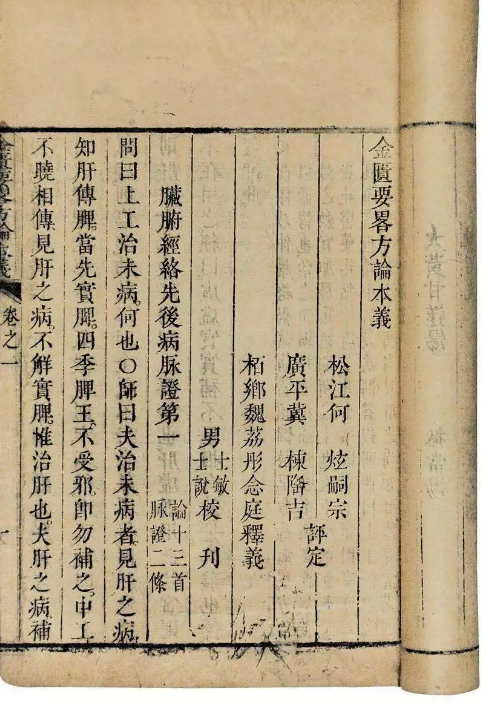 金匱要畧方論本義
松江何 炫嗣宗
廣平冀 棟隆吉
評定
栢鄉魏荔彤念庭釋義
男 士敏 士說 校 刊
臟腑經絡先後病脉證第一 論十三首 脉證二條
問曰上工治未病何也○師曰夫治未病者見肝之病
知肝傳脾當先實脾四季脾王不受邪卽勿補之中工
不曉相傳見肝之病不解實脾惟治肝也夫肝之病補
金匱要畧方論本義
卷之一